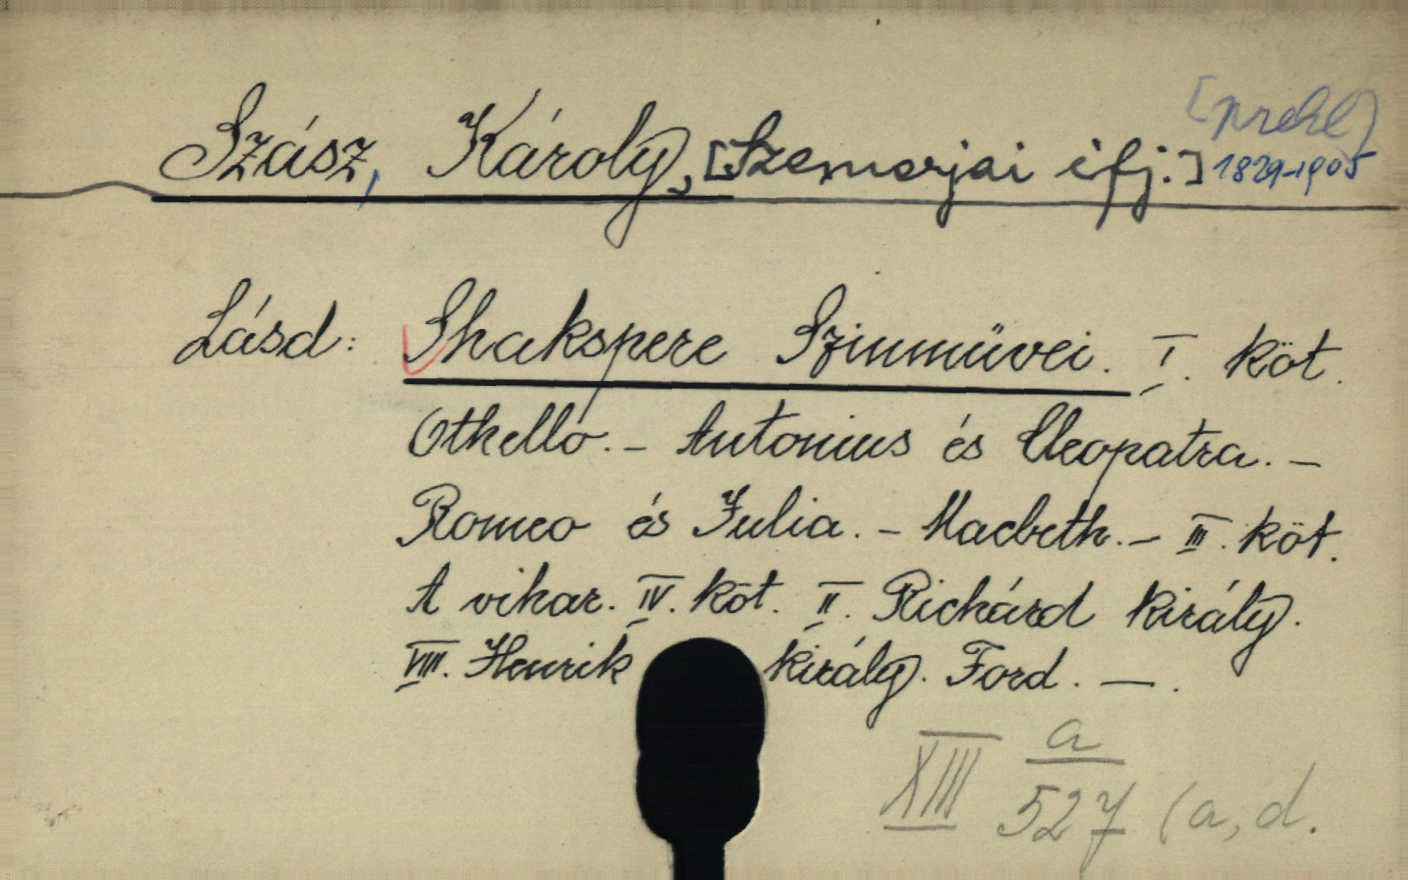 Szász, Károly, [Szemerjai ifj.] 1829-1905
Lásd: Shakspere Szinmüvei. I. köt.
Othello. - Antonius és Cleopatra. -
Romeo és Julia. - Macbeth. - III. köt.
A vihar. IV. köt. II. Richárd király.
VIII. Henrik király. Ford. —.
XIII a
527 (a, d.